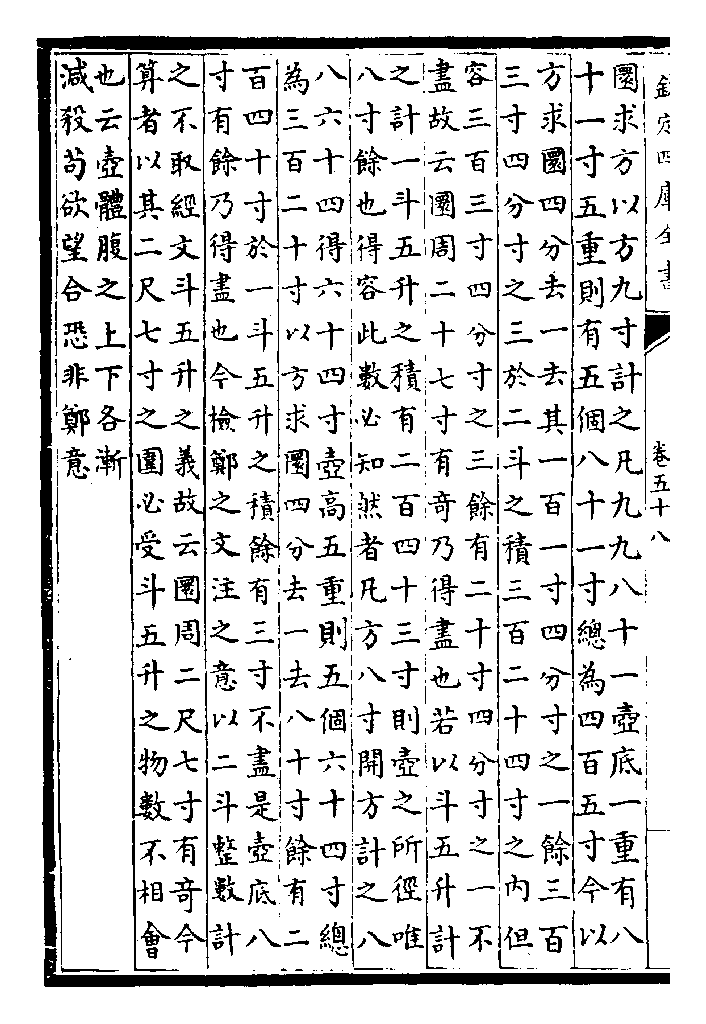 欽定四庫全書
卷五十八
圜求方以方九寸計之凡九九八十一壺底一重有八
十一寸五重則有五個八十一寸總為四百五寸今以
方求圜四分去一去其一百一寸四分寸之一餘三百
三寸四分寸之三於二斗之積三百二十四寸之內但
容三百三寸四分寸之三餘有二十寸四分寸之一不
盡故云圜周二十七寸有奇乃得盡也若以斗五升計
之計一斗五升之積有二百四十三寸則壺之所徑唯
八寸餘也得容此數必知然者凡方八寸開方計之八
八六十四得六十四寸壺高五重則五個六十四寸總
為三百二十寸以方求圜四分去一去八十寸餘有二
百四十寸於一斗五升之積餘有三寸不盡是壺底八
寸有餘乃得盡也今檢鄭之文注之意以二斗整數計
之不取經文斗五升之義故云圜周二尺七寸有奇今
算者以其二尺七寸之圜必受斗五升之物數不相會
也云壺體腹之上下各漸
減殺苟欲望合恐非鄭意